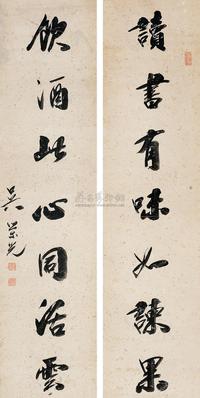 讀書有味如諫果
飲酒此心同活雲
吳榮光